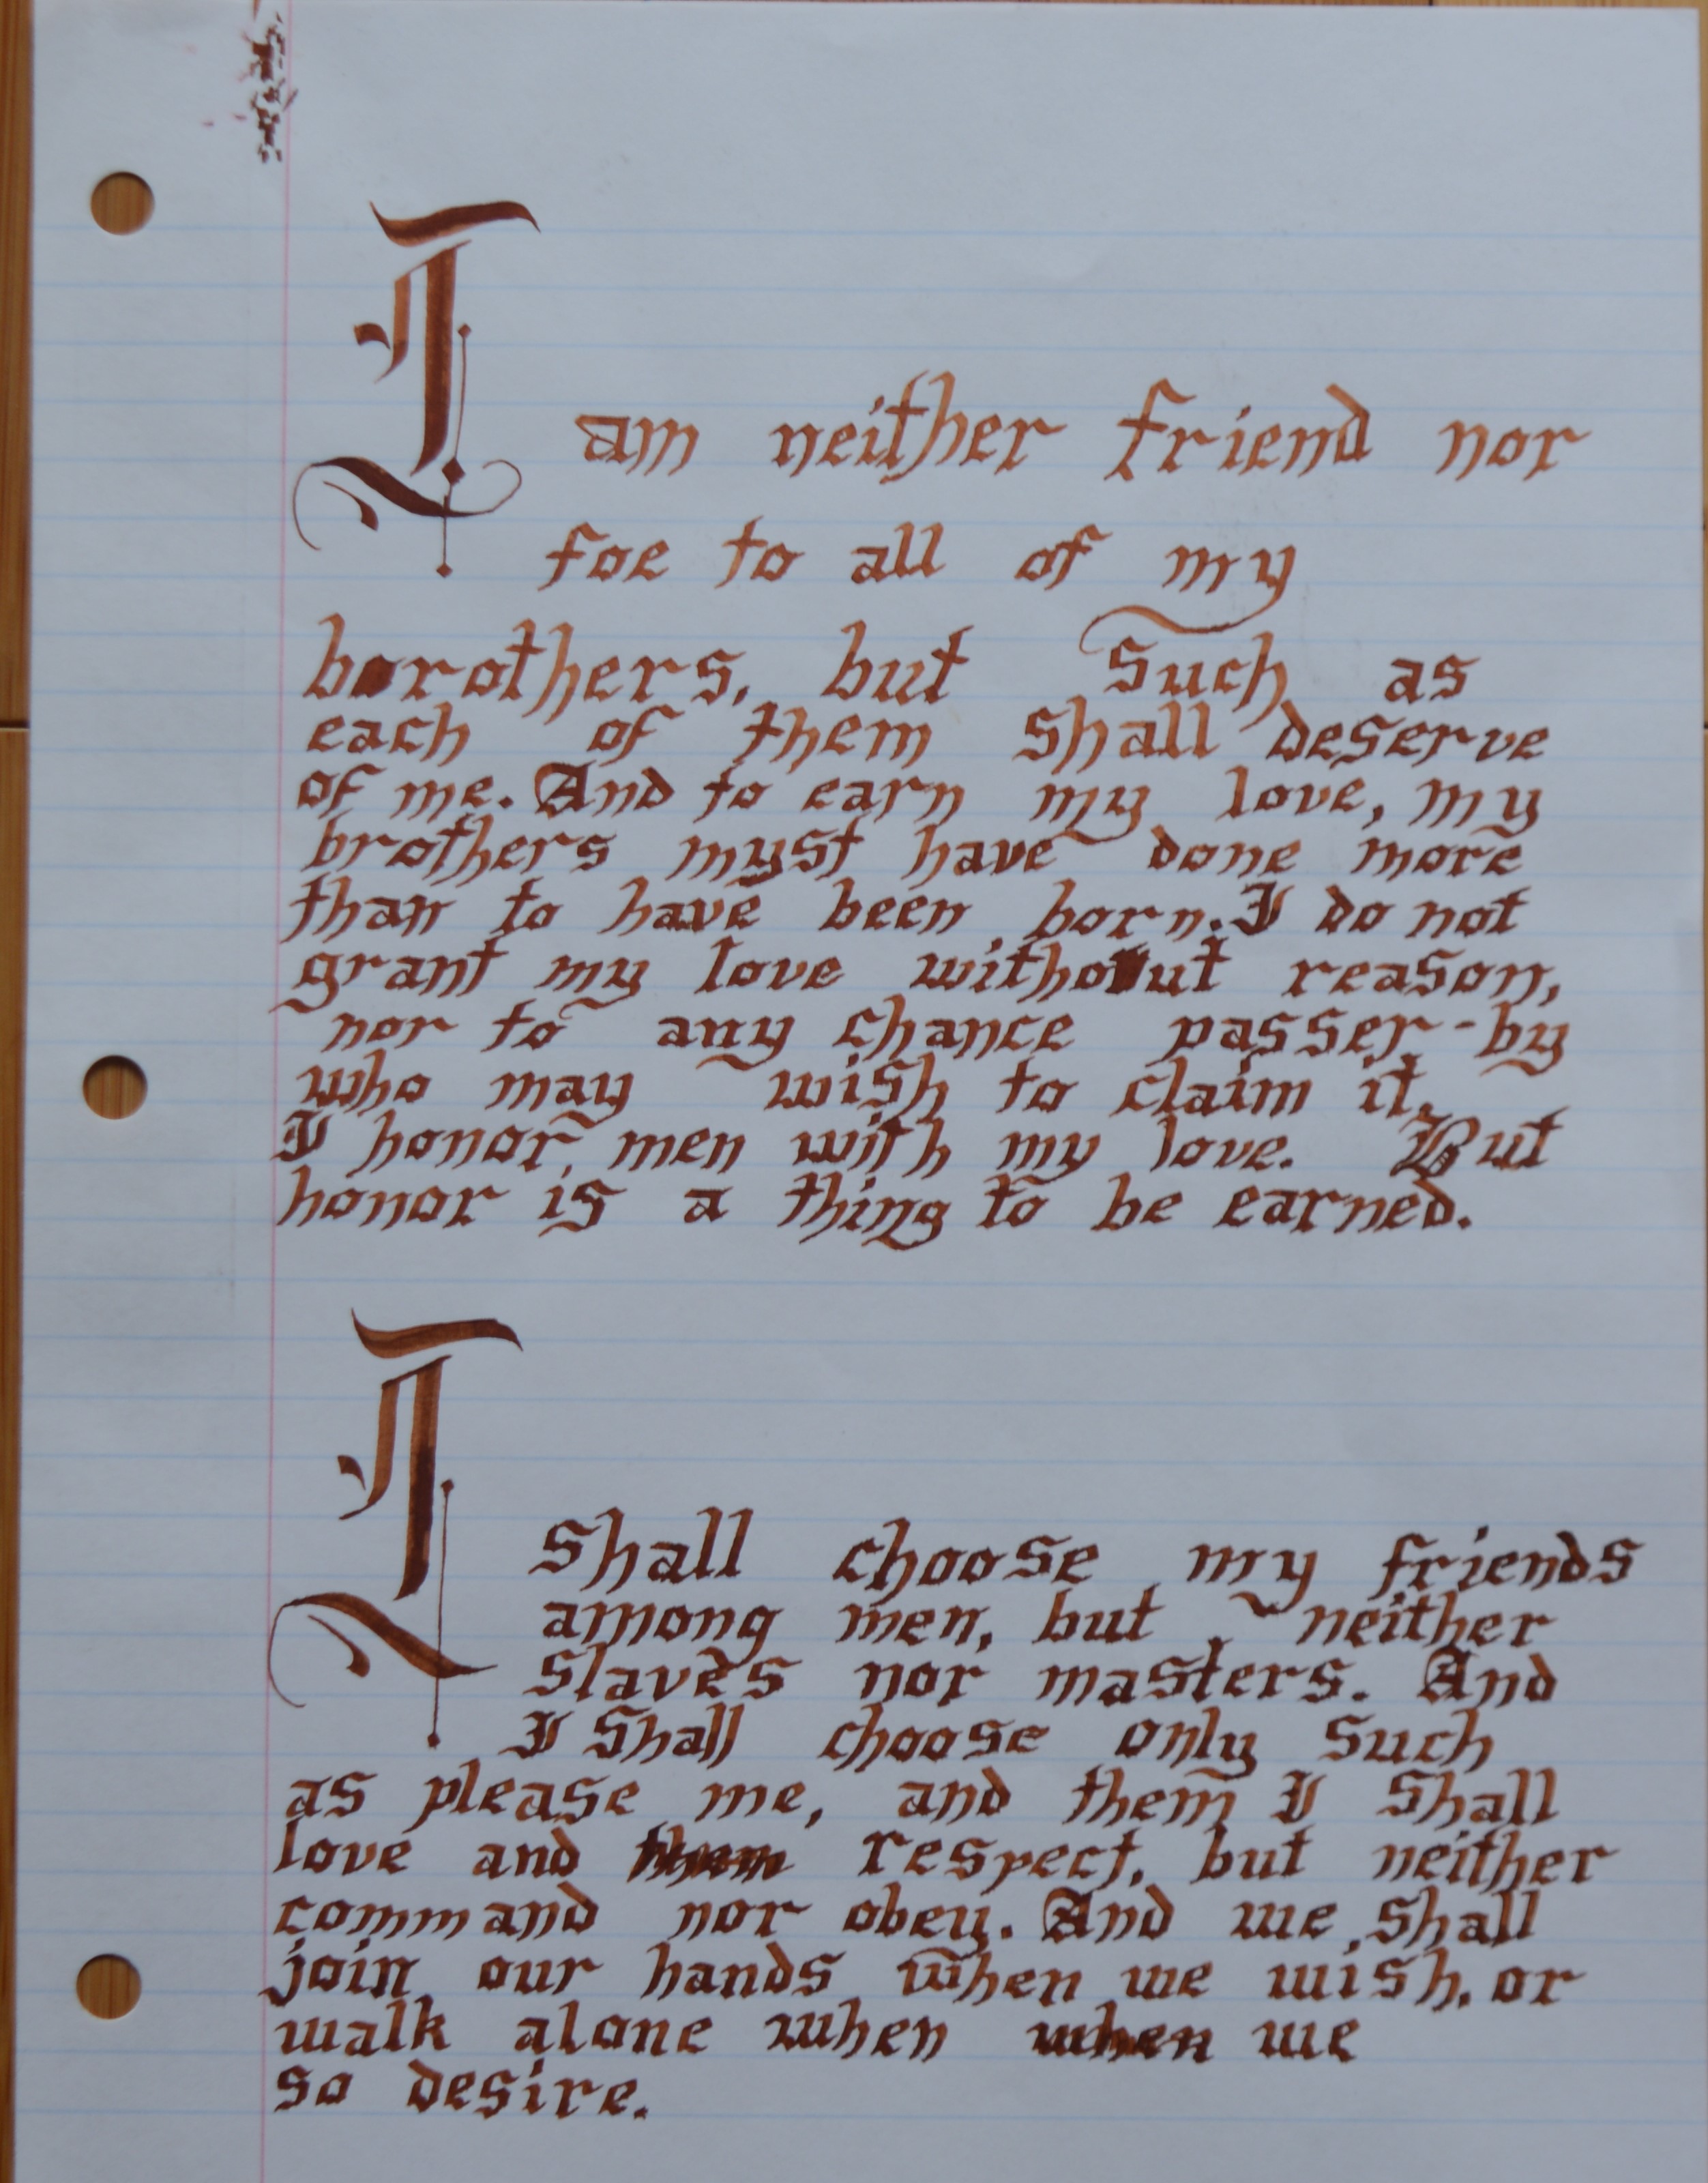 I am neither friend nor
foe to all of my
brothers, but such as
each of them shall deserve
of me. And to earn my love, my
brothers myst have done more
than to have been born. I do not
grant my love without reason,
nor to any chance passer-by
who may wish to claim it.
I honor men with my love. But
honor is a thing to be earned.
I shall choose my friends
among men, but neither
slaves nor masters. And
I Shall choose only such
as please me, and them I shall
love and them respect, but neither
command nor obey. And we shall
join our hands when we wish, or
walk alone when when we
so desire.